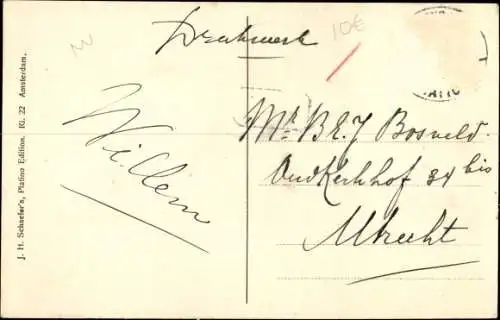 Drukwerk
10€
Willem
Mr. B.E.J. Bosveld.
Oudkerkhof 34 bis
Utrecht
J. H. Schaefer's, Platino Edition. Kl. 22 Amsterdam.